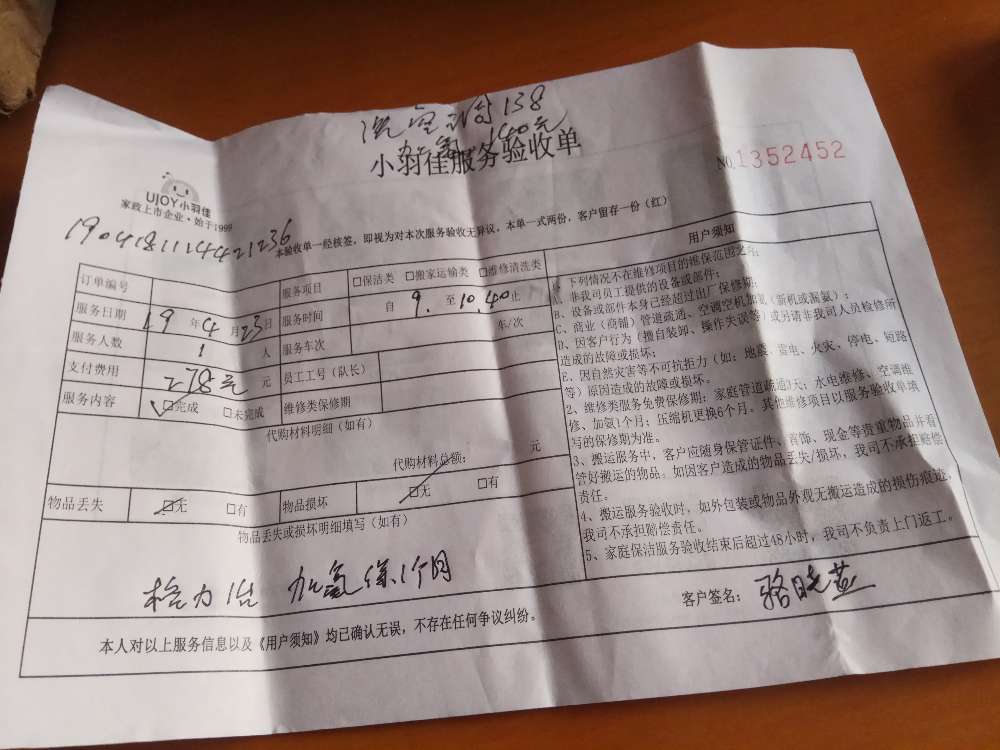 洗空调138
加氟140元
小羽佳服务验收单
NO.1352452
UJOY小羽佳
家政上市企业·始于1999
1904181124421236
本验收单一经核签，即视为对本次服务验收无异议，本单一式两份，客户留存一份（红）
订单编号
服务项目 □保洁类 □搬家运输类 □维修清洗类
服务日期 19年4月23日 服务时间 自 9. 至 10.40止
服务人数 1 人 服务车次 车/次
支付费用 278元 元 员工工号（队长）
服务内容 □完成 □未完成 维修类保修期
代购材料明细（如有）
代购材料总额： 元
物品丢失 □无 □有 物品损坏 □无 □有
物品丢失或损坏明细填写（如有）
加氟保1个月
本人对以上服务信息以及《用户须知》均已确认无误，不存在任何争议纠纷。
用户须知
下列情况不在维修项目的维保范围之内：
A、非我司员工提供的设备或部件；
B、设备或部件本身已经超过出厂保修期；
C、商业（商铺）管道疏通、空调空机加氟（新机或漏氟）；
D、因客户行为（擅自装卸、操作失误等）或另请非我司人员检修所
造成的故障或损坏；
E、因自然灾害等不可抗拒力（如：地震、雷电、火灾、停电、短路
等）原因造成的故障或损坏。
2、维修类服务免费保修期：家庭管道疏通3天；水电维修、空调维
修、加氨1个月；压缩机更换6个月。其他维修项目以服务验收单填
写的保修期为准。
3、搬运服务中，客户应随身保管证件、首饰、现金等贵重物品并看
管好搬运的物品，如因客户造成的物品丢失/损坏，我司不承担赔偿
责任。
4、搬运服务验收时，如外包装或物品外观无搬运造成的损伤痕迹，
我司不承担赔偿责任。
5、家庭保洁服务验收结束后超过48小时，我司不负责上门返工。
客户签名：骆晓燕